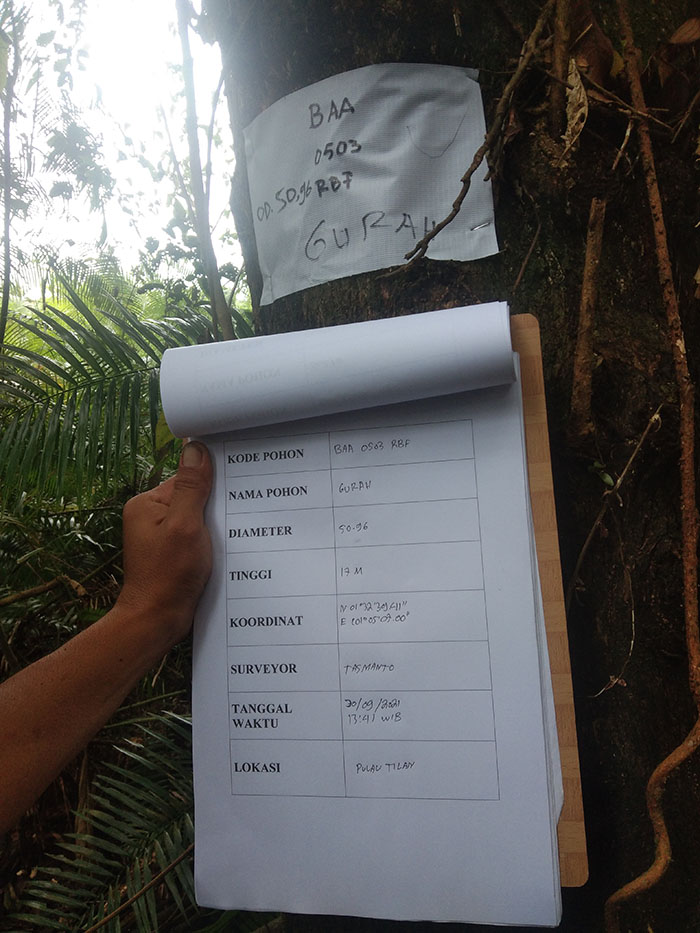 BAA
0503
OD. 50,96 RBF
GURAH
KODE POHON BAA 0503 RBF
NAMA POHON GURAH
DIAMETER 50.96
TINGGI 17 M
KOORDINAT N 01°32'39.411"
E 101°05'09.00"
SURVEYOR TASMANTO
TANGGAL 30/09/2021
WAKTU 13:41 WIB
LOKASI PULAU TILAN